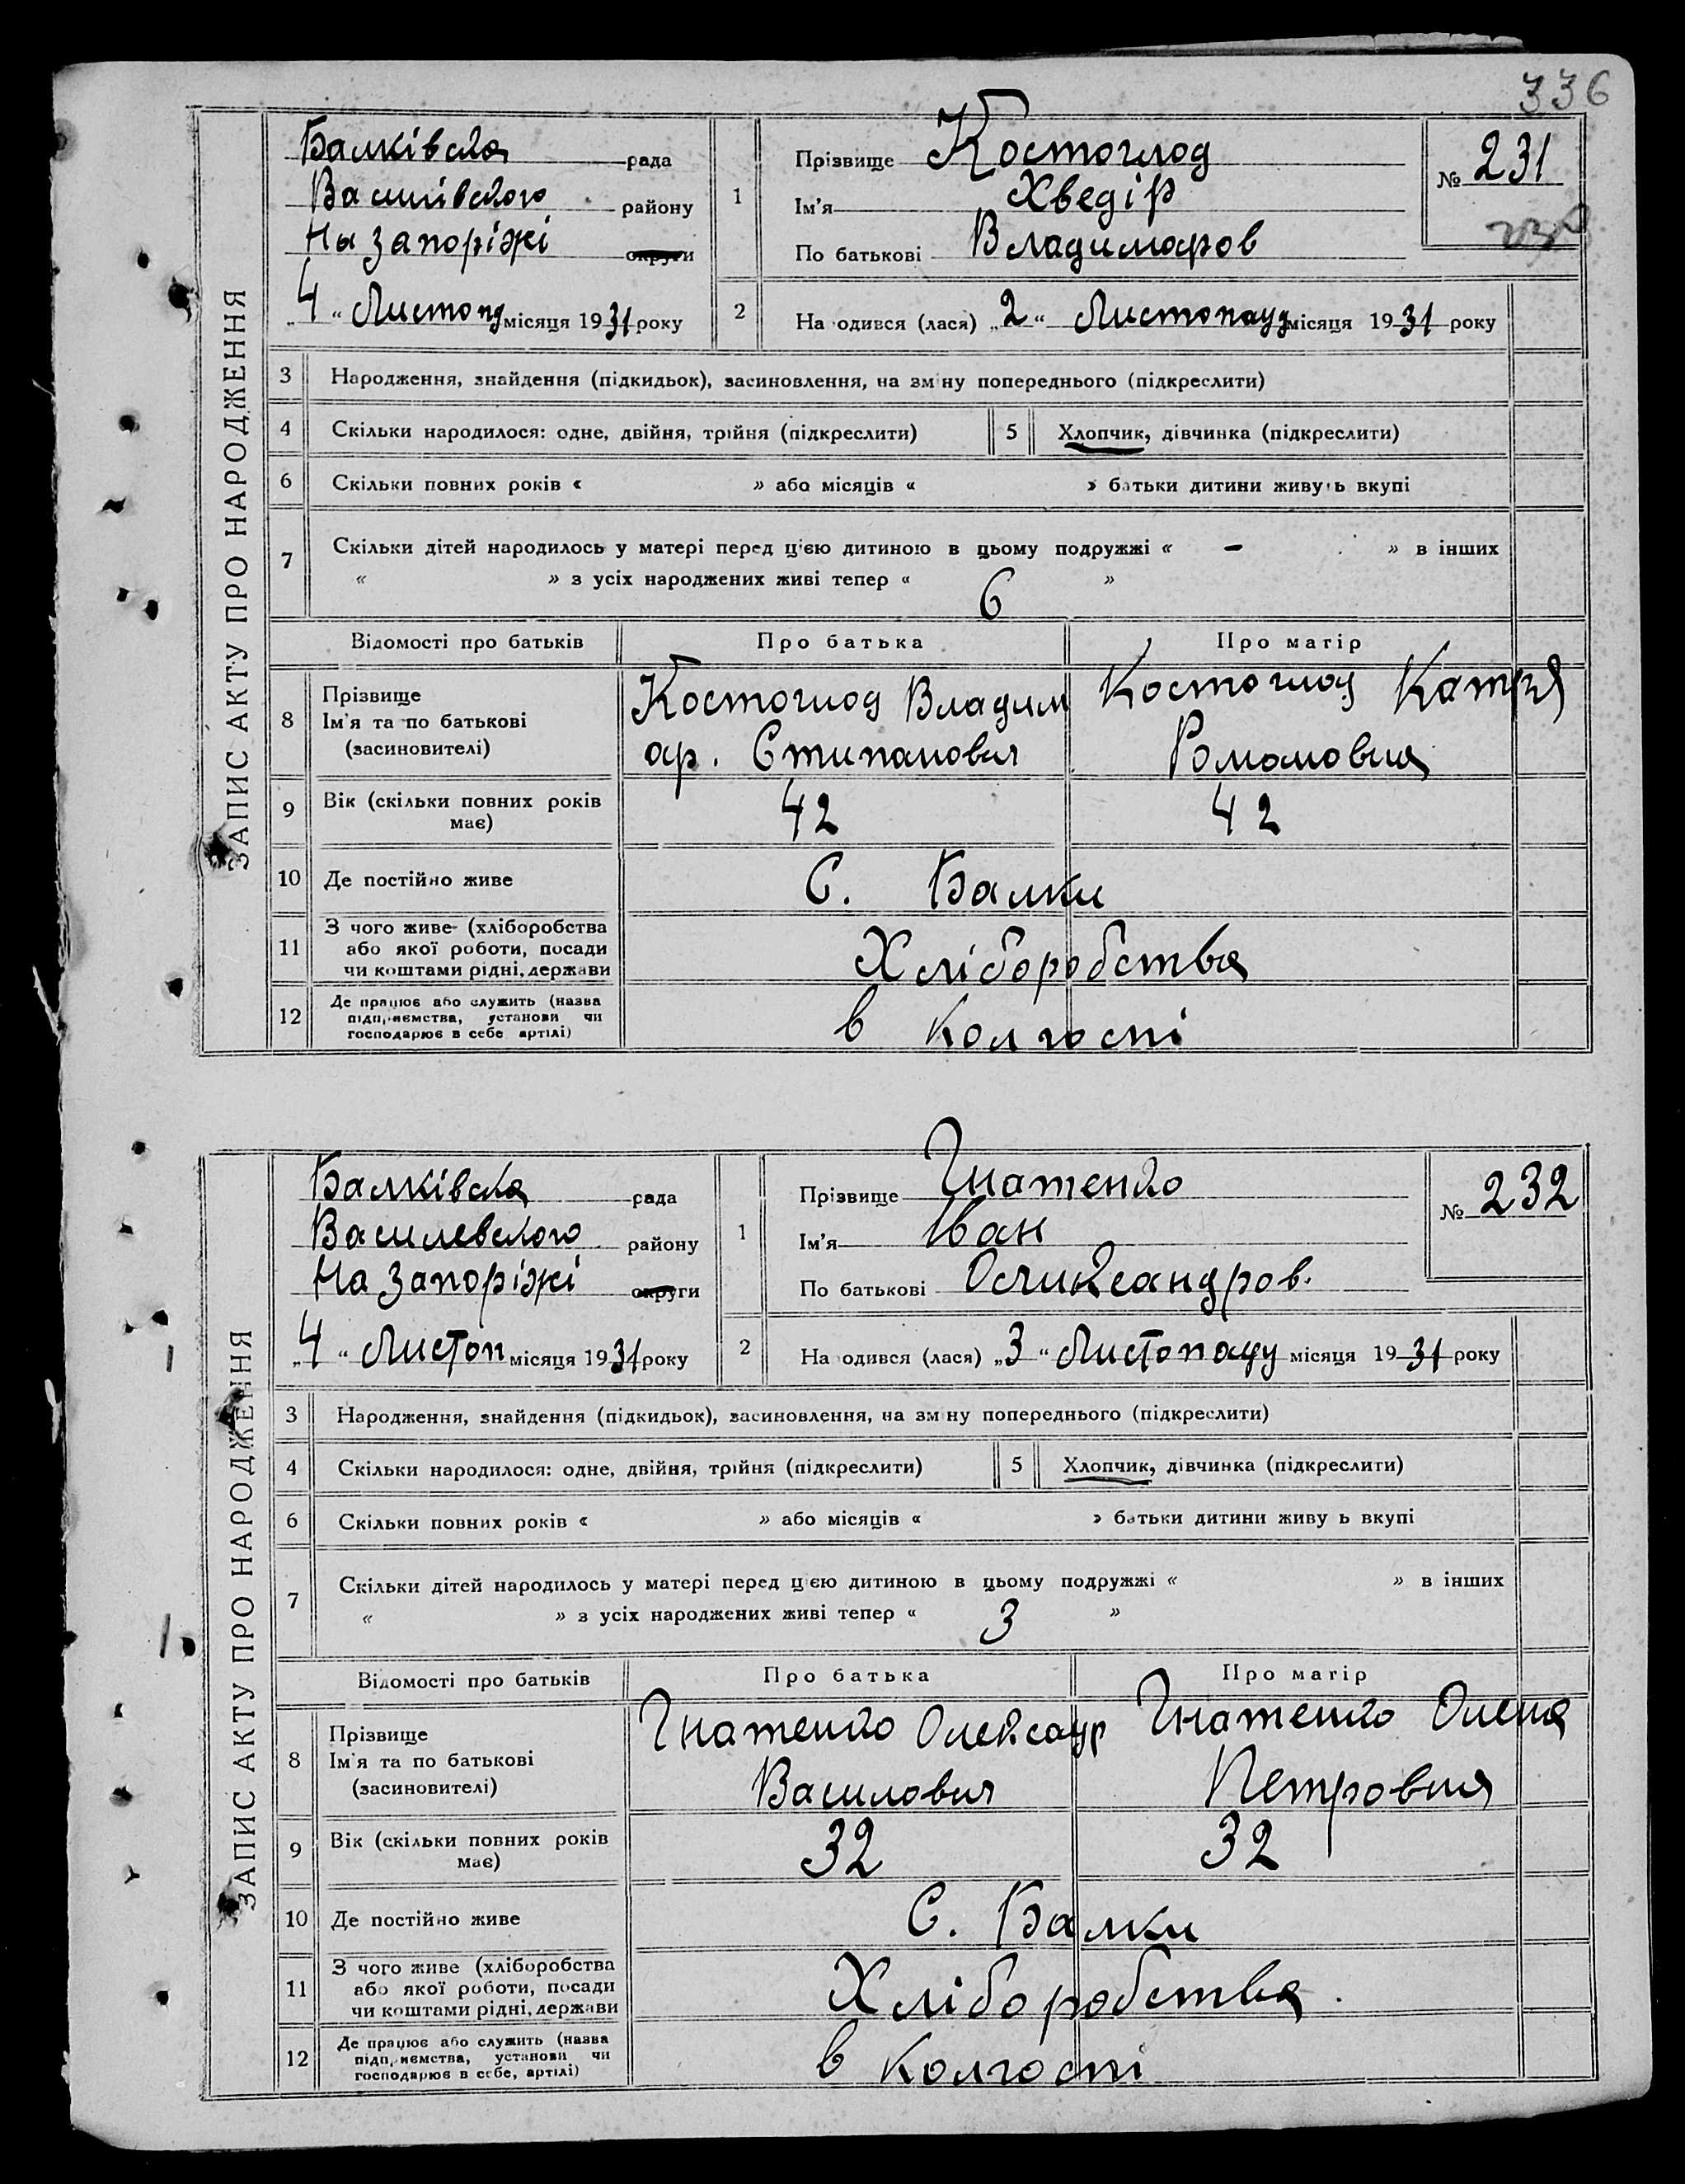 336
ЗАПИС АКТУ ПРО НАРОДЖЕННЯ
Балківська рада
Василівского району
На Запоріжі округи
„4“ Листопд місяця 1931 року
1 Прізвище Костоглод
Ім'я Хведір
По батькові Владимаров
№ 231
2 На одився (лася) „2“ Листопаду місяця 1931 року
3 Народження, знайдення (підкидьок), засиновлення, на зміну попереднього (підкреслити)
4 Скільки народилося: одне, двійня, трійня (підкреслити) 5 Хлопчик, дівчинка (підкреслити)
6 Скільки повних років « » або місяців « » батьки дитини живуть вкупі
7 Скільки дітей народилось у матері перед цією дитиною в цьому подружжі « – » в інших
« » з усіх народжених живі тепер « 6 »
Відомості про батьків Про батька Про матір
8 Прізвище Ім'я та по батькові (засиновителі)
Костоглод Владим
ар. Стипанович
Костоглод Катря
Романовна
9 Вік (скільки повних років має) 42 42
10 Де постійно живе С. Балки
11 З чого живе (хліборобства
або якої роботи, посади
чи коштами рідні, держави
Хліборобства
12 Де працює або служить (назва
підприємства, установи чи
господарює в себе артілі)
в колгоспі
ЗАПИС АКТУ ПРО НАРОДЖЕННЯ
Балківська рада
Василевского району
На Запоріжі округи
„4“ Листоп місяця 1931 року
1 Прізвище Гнатенко
Ім'я Іван
По батькові Олександров.
№ 232
2 На одився (лася) „3“ Листопаду місяця 1931 року
3 Народження, знайдення (підкидьок), засиновлення, на зміну попереднього (підкреслити)
4 Скільки народилося: одне, двійня, трійня (підкреслити) 5 Хлопчик, дівчинка (підкреслити)
6 Скільки повних років « » або місяців « » батьки дитини живу ь вкупі
7 Скільки дітей народилось у матері перед цією дитиною в цьому подружжі « » в інших
« » з усіх народжених живі тепер « 3 »
Відомості про батьків Про батька Про матір
8 Прізвище Ім'я та по батькові (засиновителі)
Гнатенко Олександр
Василович
Гнатенко Олена
Петровна
9 Вік (скільки повних років має) 32 32
10 Де постійно живе С. Балки
11 З чого живе (хліборобства
або якої роботи, посади
чи коштами рідні, держави
Хліборобства.
12 Де працює або служить (назва
підприємства, установи чи
господарює в себе, артілі)
в колгоспі